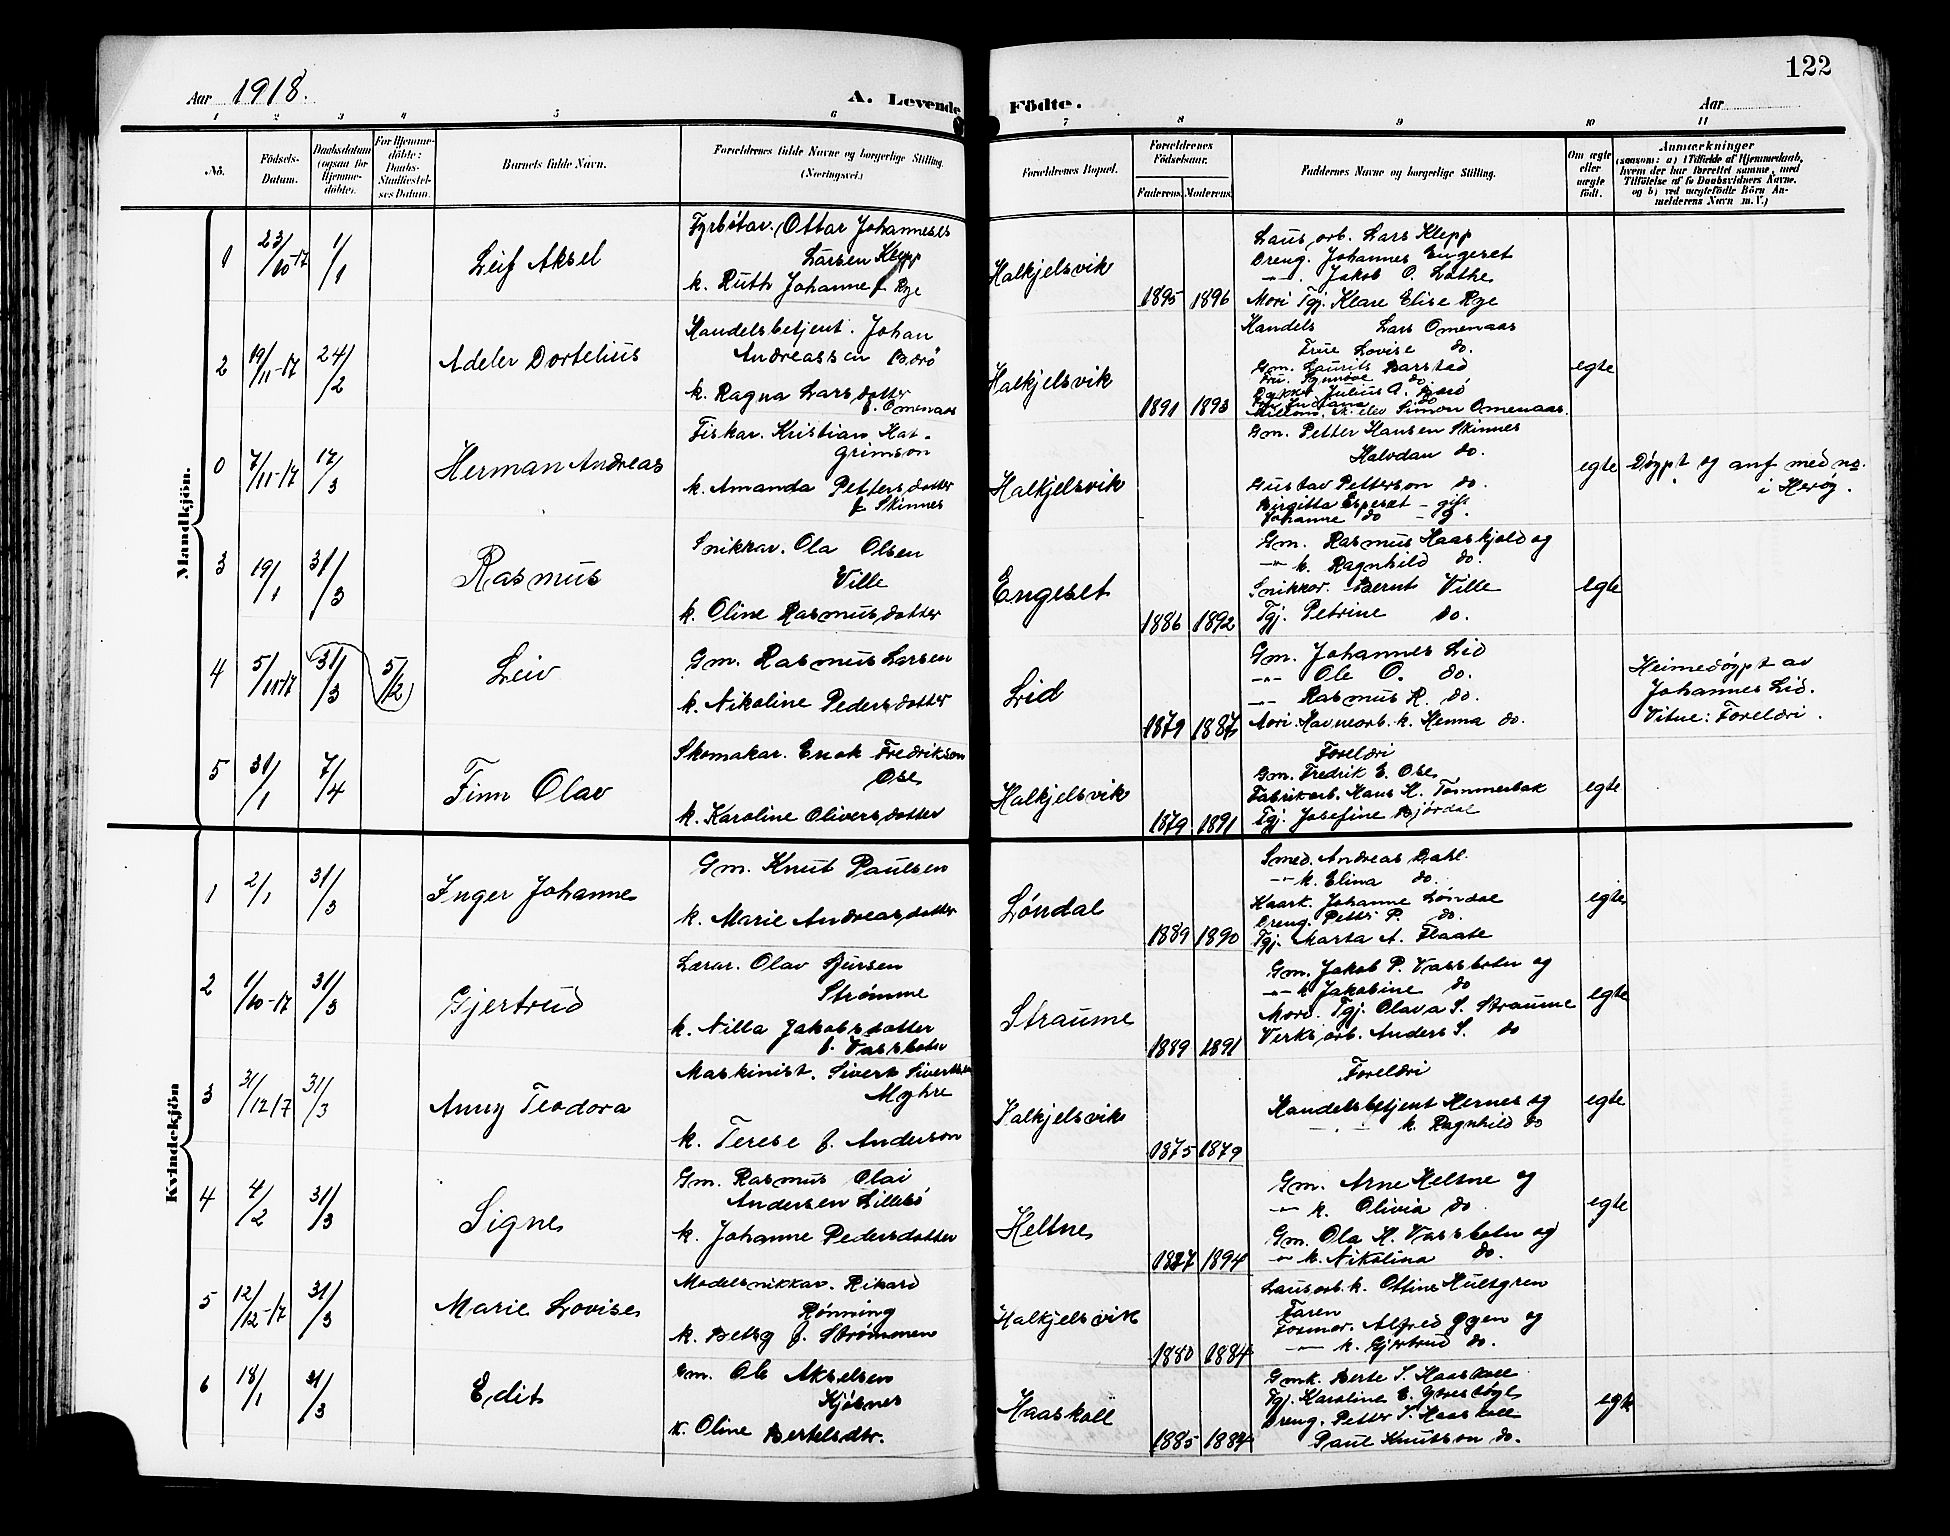 122
Aar 1918.
A. Levende Födte.
Aar
1 2 3 4 5 6 7 8 9 10 11
No.
Födsels-Datum.
Daabsdatum (ogsaa for Hjemmedöbte).
For Hjemmedöbte: Daabs-Stadfæstelses Datum.
Barnets fulde Navn.
Forældrenes fulde Navne og borgerlige Stilling. (Næringsvei.)
Forældrenes Bopæl.
Forældrenes Födselsaar.
Faderens. Moderens.
Faddernes Navne og borgerlige Stilling.
Om ægte eller uægte födt.
Anmærkninger
(saasom: a) i Tilfælde af Hjemmedaab, hvem der har forrettet samme, med Tilföielse af to Daabsvidners Navne. og b) ved uægtefödte Börn Anmelderens Navn m. V.)
Mandkjön.
1 23/10-17 1/1 Leif Aksel
Fyrbötar. Ottar Johanneses
Larsen Klepp
k. Ruth Johanne f. Rye
Halkjelsvik
1895 1896
Laus arb. Lars Klepp
Dreng. Johannes Engeset
-"-. Jakob O. Lothe
Mori Tgj. Klara Elise Rye
2 19/11-17 24/2 Adeler Dortelius
Handelsbetjent. Johan
Andreassen Barö
k. Ragna Larsdotter
f. Omenaas
Halkjelsvik
1891 1893
Handels Lars Omenaas
Frue Lovise do.
Gm. Laurits Barstad
Fru. Synnöve do
Julius A.
Simon Omenaas.
egte
0 7/11-17 17/3 Herman Andreas
Fiskar. Kristian Hat-
grimson
k. Amanda Pettersdotter
f. Skinnes
Halkjelsvik
Gm. Petter Hansen Skinnes
Halvdan do.
Gustav Petterson do.
Birgitta Espeset - gift
Johanne do - g.
egte
Døypt og anf med no.
i Herøy.
3 19/1 31/3 Rasmus
Snikkar. Ola Olsen
Ville
k. Oline Rasmusdotter
Engeset
1886 1892
Gm. Rasmus Haaskjold og
-"- k. Ragnhild do.
Snikkar. Bernt Ville
Tgj. Petrine do.
egte
4 5/11-17 31/3 5/2 Leiv
Gm. Rasmus Larsen
k. Nikoline Pedersdotter
Lid
1879 1887
Gm. Johannes Lid
-"- Ole O. do.
-"- Rasmus R. do.
Mori. Havnearb. k. Henna do.
Heimedøypt av
Johannes Lid.
Vitne: Foreldri.
5 31/1 7/4 Finn Olav
Skomakar. Enok Fredrikson
Ose
k. Karoline Oliversdotter
Halkjelsvik
1879 1891
Foreldri
Gm. Fredrik E. Ose
Fabrikarb. Hans H. Tommerbak
Tgj. Josefine Bjørdal
egte
Kvindekjön
1 2/1 31/3 Inger Johanne
Gm. Knut Paulsen
k. Marie Andreasdotter
Løndal
1889 1890
Smed. Andreas Dahl.
-"- k. Elina do.
Haark. Johanne Løndal
Dreng. Petter P. do.
Tgj. Marta A. Flaate
egte
2 1/10-17 31/3 Gjertrud
Lærar. Olav Sjursen
Strømme
k. Nilla Jakobsdotter
f. Vassboten
Straume
1889 1891
Gm. Jakob P. Vassboten og
-"- k Jakobine do
Mori. Tgj. Olava S. Straume
Verksarb. Anders S. do
egte
3 31/12 17 31/3 Anny Teodora
Maskinist. Sivert Sivertsen
Myhre
k. Terese f. Anderson
Halkjelsvik
1875 1879
Foreldri
Handelsbetjent Hernes og
k. Ragnhild do
egte
4 4/2 31/3 Signe
Gm. Rasmus Olai
Andersen Lillebö
k. Johanne Pedersdotter
Heltne
1887 1894
Gm. Arne Heltne og
-"- k. Olivia do.
Gm. Ola H. Vassboten og
-"- k. Nikolina do.
egte
5 12/12-17 31/3 Marie Lovise
Modelsnikkar. Rikard
Rønning
k. Betsy f. Strömmen
Halkjelsvik
1880 1884
Lausarb. k. Ottine Hultgren
Faren
Formar. Alfred Ygen og
-"- k. Gjertrud do.
6 18/1 31/3 Edit
Gm. Ole Akselsen
Kjösnes
k. Oline Bertelsdtr.
Haaskoll
1885 1884
Gmk. Berte S. Haaskoll
Tgj. Karoline E.
Dreng. Petter S. Haaskoll
Paul Knutson do.
egte